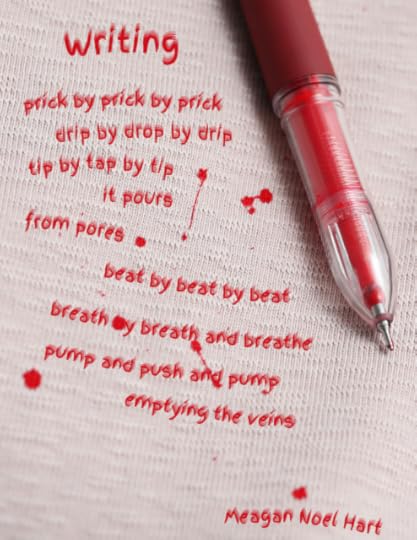 Writing
prick by prick by prick
drip by drop by drip
tip by tap by tip
it pours
from pores
beat by beat by beat
breath by breath and breathe
pump and push and pump
emptying the veins
Meagan Noel Hart